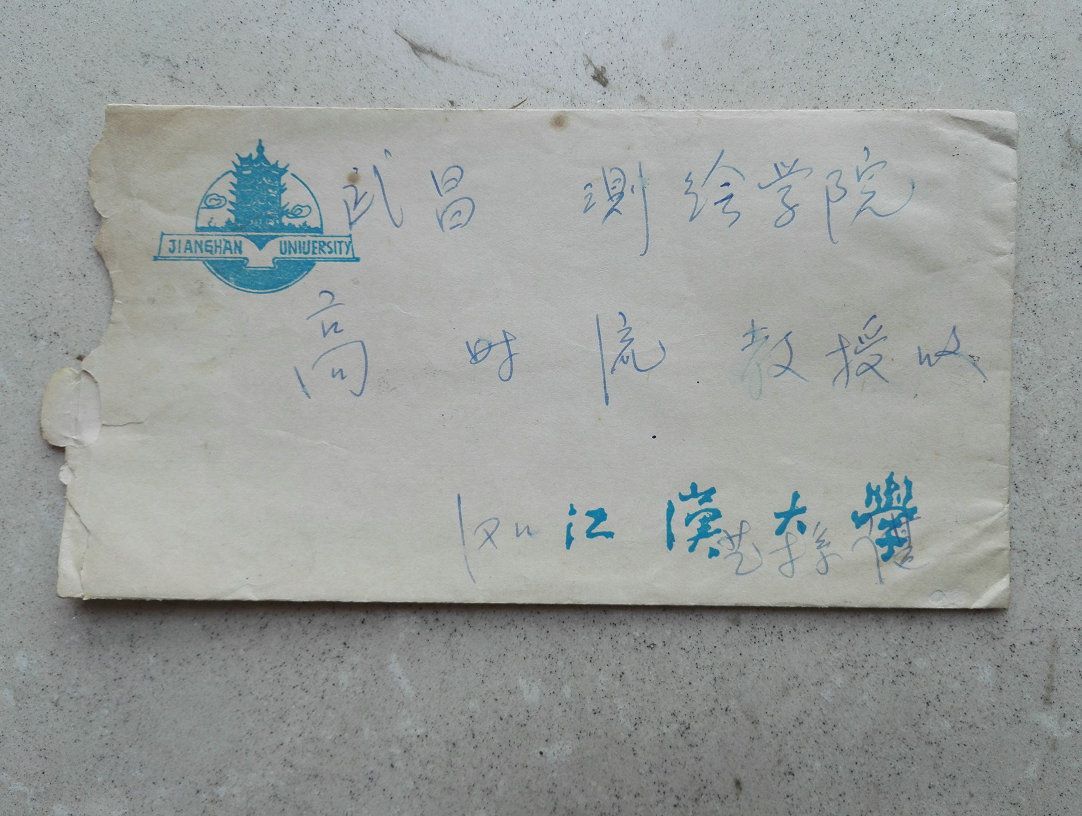 JIANGHAN UNIVERSITY
武昌 测绘学院
高时流 教授收
江漢大學